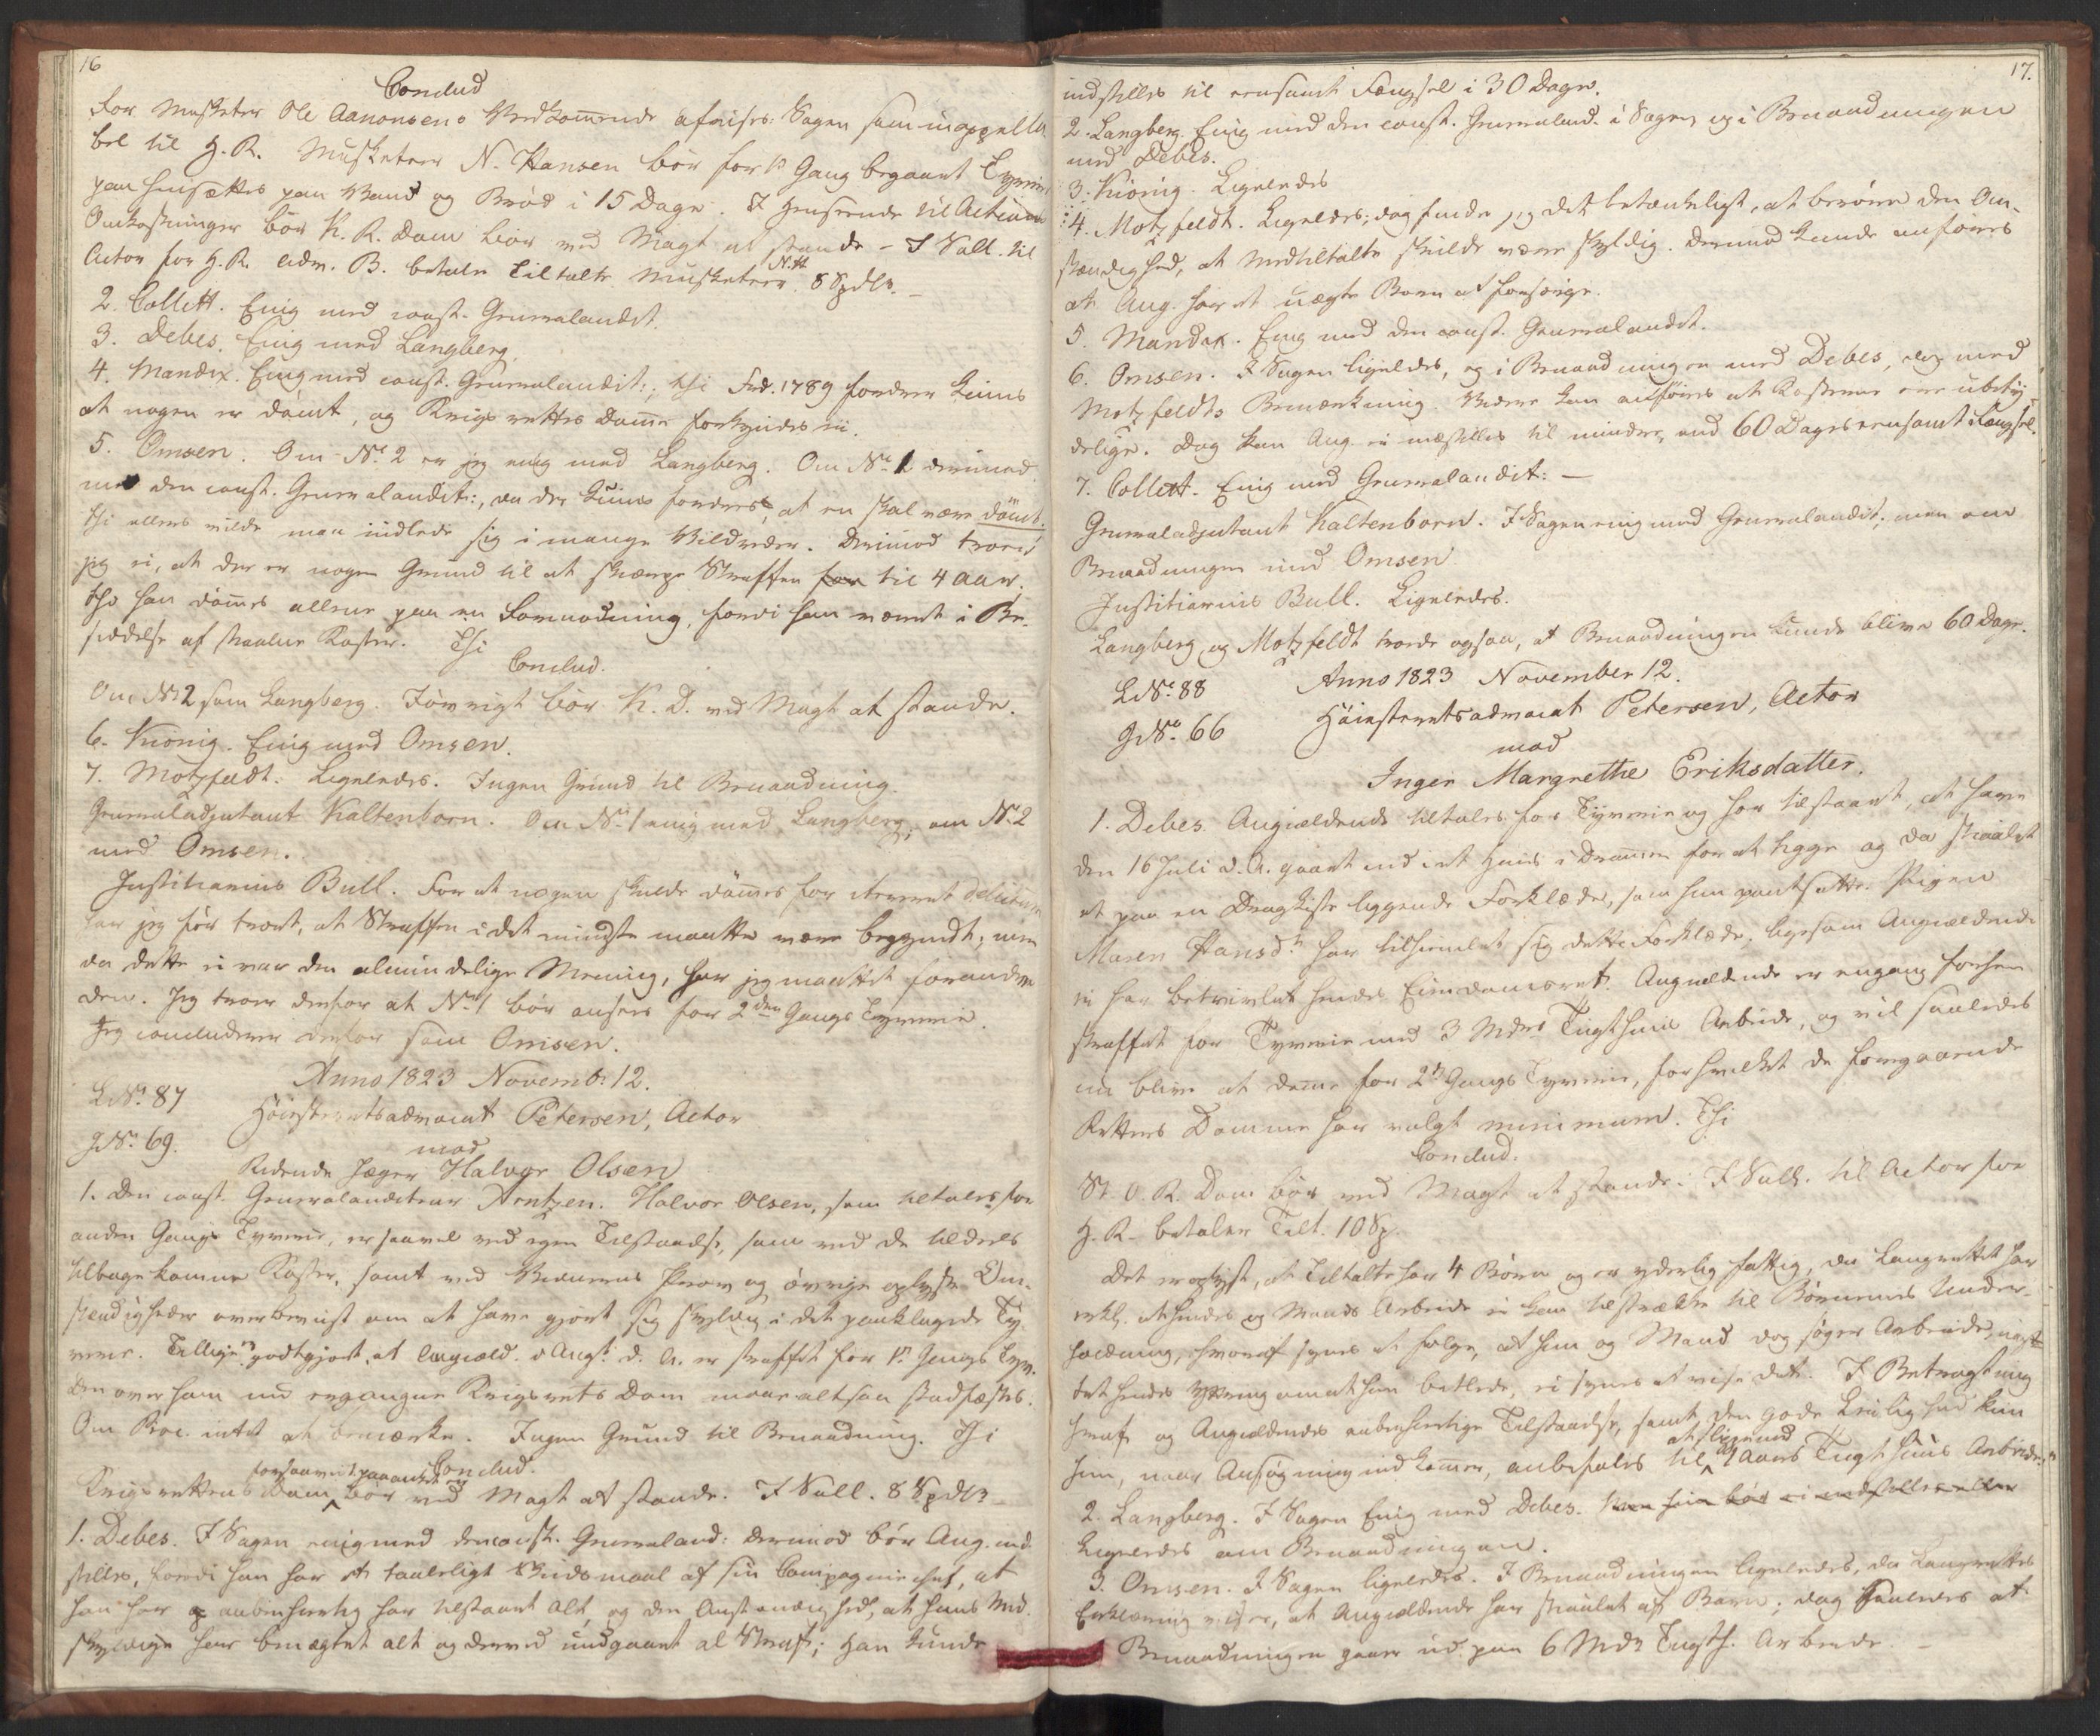 16
Conclud
For Musketer Ole Aanonsens Vedkommende afvises Sagen som inappella-
bel til H. R. Musketeer N. Hansen bør for 1ste Gang begaaet Tyverie
paa hensættes paa Vand og Brød i 15 Dage. I Henseende til Actions
Omkostninger bør K. R. Dom bør ved Magt at stande – I Sall. til
Actor for H. R. adv. B. betale Tiltalte Musketeer N. H 8 Spdlr. –
2. Collett. Enig med const. Generalaudit.
3. Debes. Enig med Langberg.
4. Mandix. Enig med const. Generalaudit:, thi Frd. 1789 fordrer kuns
at nogen er dømt, og Krigsrettes Domme forkyndes ei.
5. Omsen. Om No 2 er jeg enig med Langberg. Om No 1 derimod
med den const. Generalaudit:, da der kuns fordres, at en skal være dömt.
thi ellers vilde man indlede sig i mange Vildreder. Derimod troer
jeg ei, at der er nogen Grund til at skærpe Straffen for til 4 Aar.
thi han dømes allene paa en Formodning, fordi han været i Be-
siddelse af stiaalne Koster. Thi
Conclud.
Om No 2 som Langberg. Iøvrigt bør K. D. ved Magt at stande.
6. Kiönig. Enig med Omsen.
7. Motzfeldt. Ligeledes. Ingen Grund til Benaadning.
Generaladjutant Kaltenborn. Om No 1 enig med Langberg, om No 2
med Omsen.
Justitiarius Bull. For at nogen skulde dømes for itereret delictum
har jeg før troet, at Straffen i det mindste maatte være begyndt; men
da dette ei var den almindelige Mening, har jeg maattet forandre
den. Jeg troer derfor at No 1 bør ansees for 2den Gangs Tyverie.
Jeg concluderer derfor som Omsen.
Anno 1823 Novemb: 12.
L No. 87 Höiesteretsadvocat Petersen, Actor
G No. 69. mod
Ridende Jæger Halvor Olsen
1. Den const. Generalauditeur Arntzen. Halvor Olsen, som tiltales for
anden Gangs Tyverie, er saavel ved egen Tilstaaelse, som ved de tildeels
tilbagekomne Koster, samt ved Vidnernes Prov og øvrige oplyste Om-
stændigheder overbeviist om at have gjort sig skyldig i det paaklagede Ty-
verie. Tillige godtgjort, at Angiæld. d. Augt. d. A. er straffet for 1ste Gangs Tyv.
Den over ham nu ergangne Krigsrets Dom maae altsaa stadfæstes.
Om Proc. intet at bemærke. Ingen Grund til Benaadning. Thi
Conclud.
Krigsrettens Dom forsaavidt paaanket er bør ved Magt at stande. I Sall. 8 Spdlr
1. Debes. I Sagen enig med den const. Generalaud: derimod bør Aug. ind-
stilles, fordi han har et taaleligt Skudsmaal af sin Compagniechef, at
han har aabenhiertig har tilstaaet alt, og den Omstændighed, at hans Med-
skyldige har benægtet alt og derved undgaaet al Straf; han kunde
17.
indstilles til eensomt Fængsel i 30 Dage.
2. Langberg. Enig med den const. Generalaud. i Sagen, og i Benaadningen
med Debes.
3. Kiönig. Ligeledes
4. Motzfeldt. Ligeledes; dog finder jeg det betænkeligt, at berøre den Om-
stændighed, at Medtiltalte skulde være skyldig. Derimod kunde anføres
at Aug. har et uægte Barn at forsørge.
5. Mandix. Enig med den const. Generalaudit.
6. Omsen. I Sagen ligeledes, og i Benaadningen med Debes, dog med
Motzfeldts Bemærkning. Videre kan anføres at Kosterne ere ubety-
delige. Dog kan Aug. ei indstilles til mindre, end 60 Dages eensomt Fængsel.
7. Collett. Enig med Generalaudit: –
Generaladjutant Kaltenborn. I Sagen enig med Generalaudit; men om
Benaadningen med Omsen
Justitiarius Bull. Ligeledes.
Langberg og Motzfeldt troede ogsaa, at Benaadningen kunde blive 60 Dage.
Anno 1823 November 12.
L No. 88
Höiesteretsadvocat Petersen, Actor
G No. 66
mod
Inger Margrethe Eriksdatter.
1. Debes. Angiældende tiltales for Tyverie og har tilstaaet, at have
den 16 Juli d. A. gaaet ind i et Huus i Drammen for at tigge og da stiaalet
et paa en Dragkiste liggende Forklæde, som hun pantsatte. Pigen
Maren Hansdr. har tilhiemlet sig dette Forklæde, ligesom Angiældende
ei har betvivlet hendes Eiendomsret. Angiældende er engang forhen
straffet for Tyverie med 3 Mdrs Tugthuus Arbeide, og vil saaledes
nu blive at dømme for 2den Gangs Tyverie, for hvilket de foregaaende
Retters Domme har valgt minimum. Thi
Conclud.
St. O. R. Dom bør ved Magt at stande. I Sall. til Actor for
H. R. betaler Tilt. 10 Sp.
Det er oplyst, at Tiltalte har 4 Børn og er yderlig fattig, da Laugrettet har
erkl. at hendes og Mands Arbeide ei kan tilstrække til Børnenes Under-
holdning, hvoraf synes at følge, at hun og Mand dog søger Arbeide,
hendes Yttring om at hun betlede, ei synes at vise det. I Betragtning
heraf og Angiældendes aabenhiertige Tilstaaelse, samt den gode Leilighed kan
hun, naar Ansøgning indkommer, anbefales til Aars Tugthuus Arbeide."
2. Langberg. I Sagen Enig med Debes.
Ligeledes om Benaadningen.
3. Omsen. I Sagen ligeledes. I Benaadningen ligeledes, da Laugrettes
Erklæring viser, at Angiældende har stiaalet af Barn; dog saaledes at
Benaadningen gaaer ud paa 6 Mdr Tugth. Arbeide. –